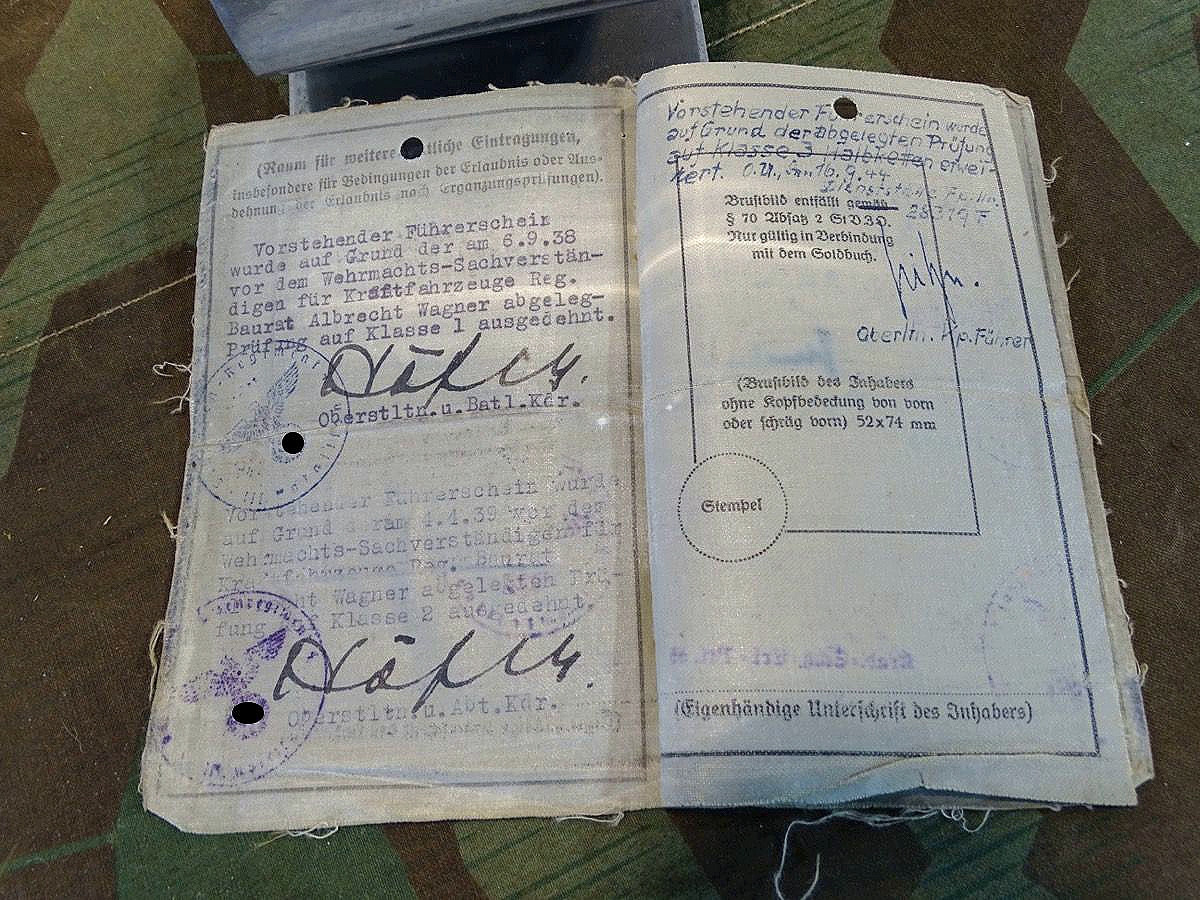 (Raum für weitere amtliche Eintragungen,
insbesondere für Bedingungen der Erlaubnis oder Aus-
dehnung der Erlaubnis nach Ergänzungsprüfungen).
Vorstehender Führerschein
wurde auf Grund der am 6.9.38
vor dem Wehrmachts-Sachverstän-
digen für Kraftfahrzeuge Reg.
Baurat Albrecht Wagner abgeleg-
Prüfung auf Klasse 1 ausgedehnt.
Oberstltn.u.Batl.Kdr.
Vorstehender Führerschein wurde
auf Grund der am 4.4.39 vor dem
Wehrmachts-Sachverständigen für
Kraftfahrzeuge Reg. Baurat
Wagner abgelegten Prü-
fung auf Klasse 2 ausgedehnt.
Oberstltn.u.Abt.Kdr.
Vorstehender Führerschein wurde
auf Grund der abgelegten Prüfung
auf Klasse 3 Halbketten erwei-
tert. O.U., 16.9.44
Dienststelle Fp.Nr.
28379 F
Brustbild entfällt gemäß
§ 70 Absatz 2 StVZO.
Nur gültig in Verbindung
mit dem Soldbuch.
Oberltn. u. Kp.Führer
(Brustbild des Inhabers
ohne Kopfbedeckung von vorn
oder schräg vorn) 52x74 mm
Stempel
(Eigenhändige Unterschrift des Inhabers)